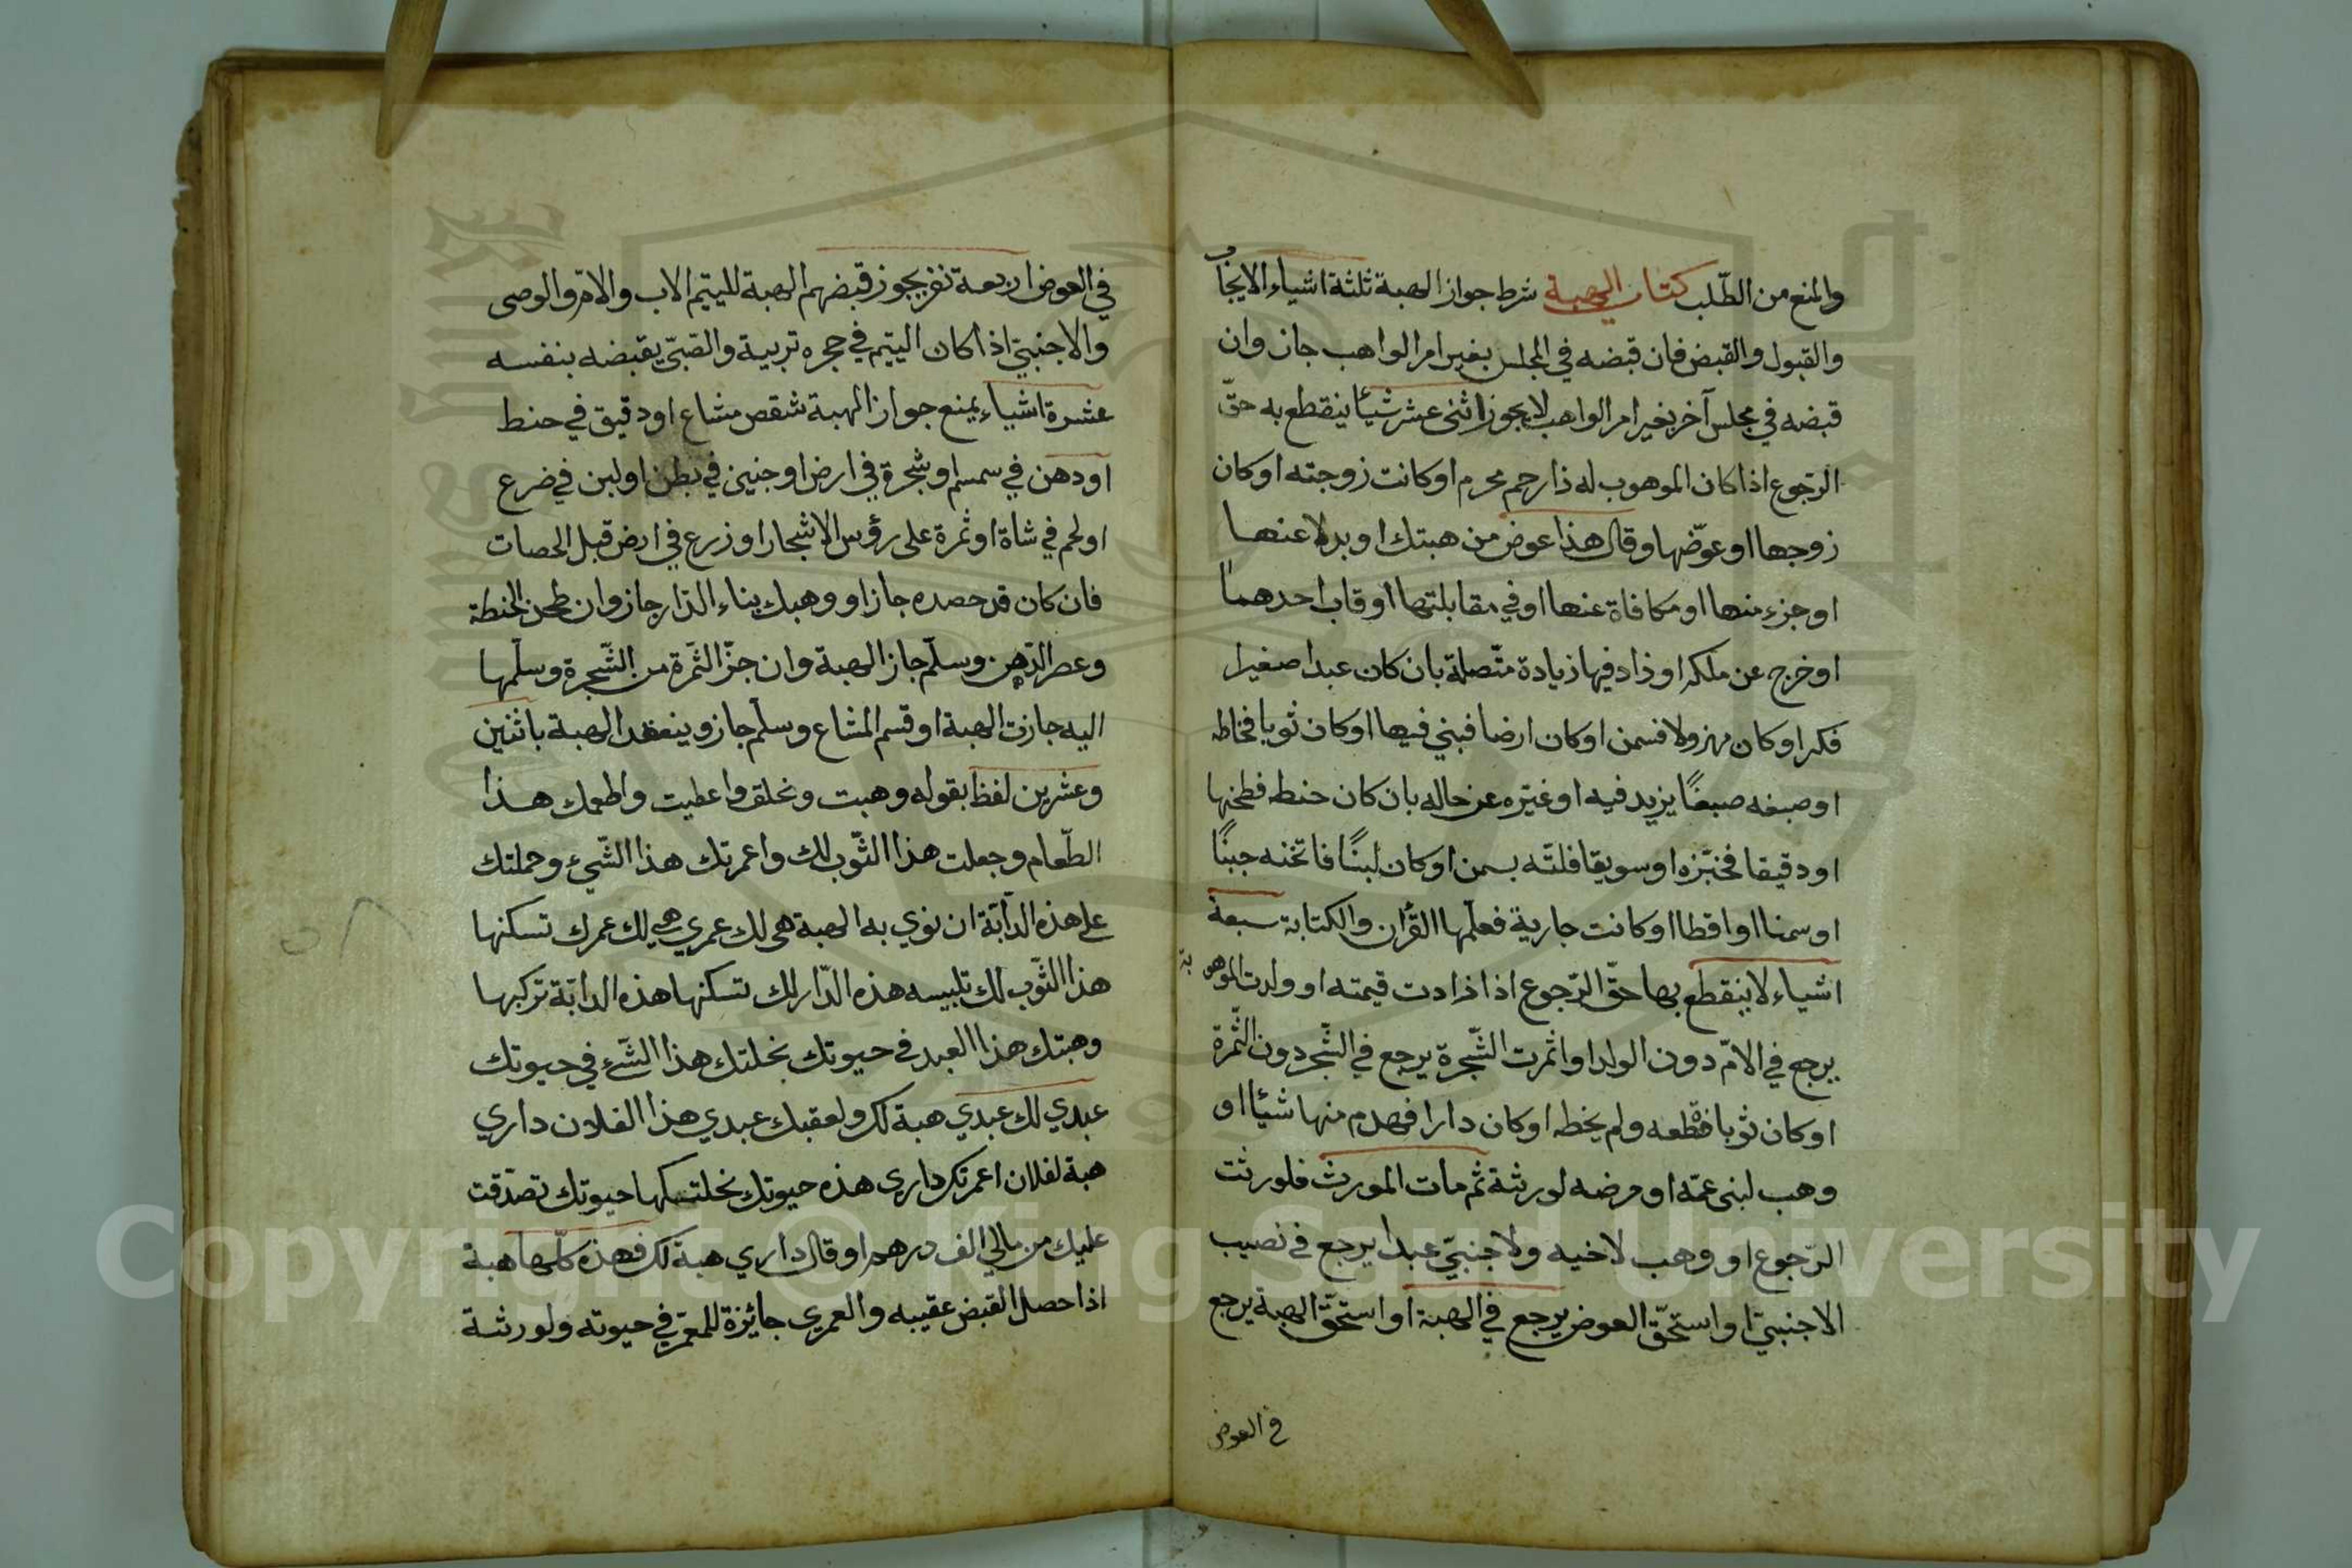 والمنع من الطّلب كتاب الهبة شرط جواز الهبة ثلثة اشياء الايجاب
والقبول والقبض فان قبضه في المجلس بغير امر الواهب جاز وان
قبضه في مجلس آخر بغير امر الواهب لا يجوز اثنى عشر شيئا ينقطع به حقّ
الرّجوع اذا كان الموهوب له ذا رحم محرم او كانت زوجته او كان
زوجها او عوّضها وقال هذا عوض من هبتك او بدلا عنها
او جزء منها او مكافاة عنها او في مقابلتها او قاب احدهما
او خرج عن ملكه او زاد فيها زيادة متّصلة بان كان عبدا صغيرا
فكبر او كان مهزولا فسمن او كان ارضا فبني فيها او كان ثوبا فخاطه
او صبغه صبغًا يزيد فيه او غيّره عن حاله بان كان حنطه فطحنها
او دقيقا فخبّزه او سويقا فلتّه بسمن او كان لبنًا فاتخنه جبنًا
او سمنا او اقطا او كانت جارية فعلّمها القرأن والكتابة سبعة
اشياء لا ينقطع بها حقّ الرّجوع اذا زادت قيمته او ولدت الموهوبة
يرجع في الامّ دون الولد او اثمرت الشّجرة يرجع في الشّجر دون الثّمرة
او كان ثوبا فقطّعه ولم يخطه او كان دارا فهدم منها شيئا او
وهب لبنى عمّه او مرضه لورثة ثم مات المورث فلورثت
الرّجوع او وهب لاخيه ولاجنبيّ عبدا يرجع في نصيب
الاجنبيّ او استحقّ العوض يرجع في الهبة او استحقّ الهبة يرجع
في العوض
في العوض اربعة نفر يجوز قبضهم الهبة لليتيم الاب والام والوصى
والاجنبيّ اذا كان اليتيم في حجره تربية والصّبيّ يقبضه بنفسه
عشرة اشياء يمنع جواز الهبة شقص مشاع او دقيق في حنط
او دهن في سمسم او شجرة في ارض او جنين في بطن او لبن في ضرع
او لحم في شاة او ثمرة على رؤس الاشجار او زرع في ارض قبل الحصات
فان كان قد حصده جاز او وهبك بناء الدّار جاز وان طحن الحنطة
وعصر الدّهن وسلّم جاز الهبة وان جزّ الثّمرة من الشّجرة وسلّمها
اليه جازت الهبة او قسم المشاع وسلّم جاز وينعقد الهبة باثنين
وعشرين لفظا بقوله وهبت ونحلق واعطيت واطعمك هذا
الطّعام وجعلت هذا الثّوب لك واعمرتك هذا الشّيئ وحملتك
على هذه الدّابّة ان نوي به الهبة هى لك عمري هي لك عمرك تسكنها
هذا الثّوب لك تلبيسه هذه الدّار لك تسكنها هذه الدابّة تركبها
وهبتك هذا العبد في حيوتك نحلتك هذا الشّئ في حيوتك
عبدي لك عبدي هبة لك ولعقبك عبدي هذا الفلان داري
هبة لفلان اعمرتك داري هذه حيوتك نحلتكها حيوتك تصدّقت
عليك من مالي الف درهم او قال داري هبة لك فهذه كلّها هبة
اذا حصل القبض عقيبه والعمرى جائزة للمعمّر في حيوته ولورثة
Copyright © King Saud University